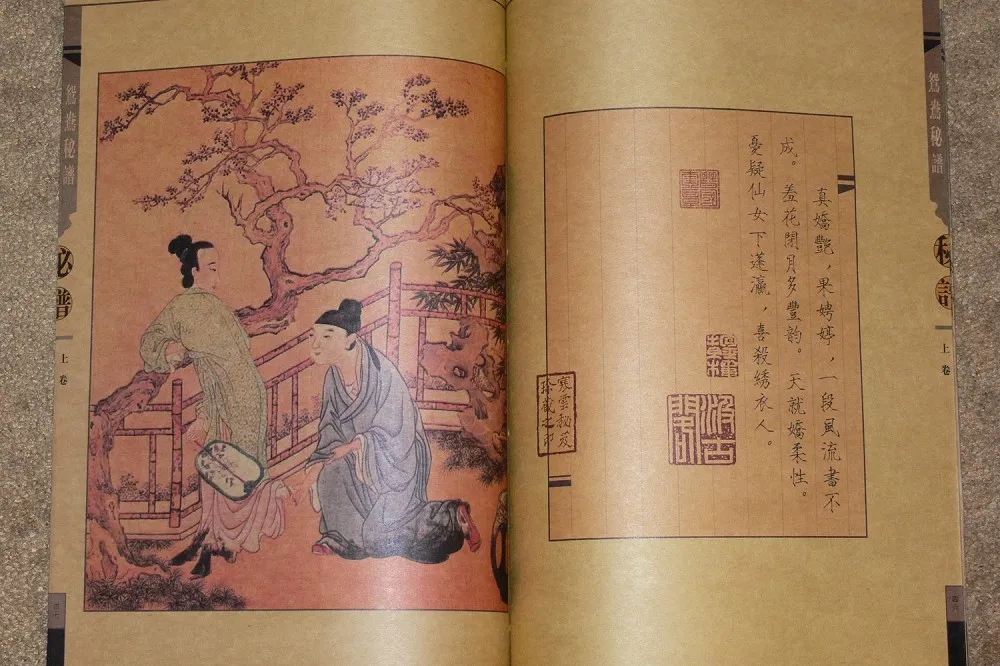 鴛鴦秘譜
秘譜
上卷
真嬌艷，果娉婷，一段風流畫不
成。羞花閉月多豐韵。天就嬌柔性。
憂疑仙女下蓬瀛，喜殺綉衣人。
寒雲秘笈
珍藏之印
鴛鴦秘譜
秘譜
上卷